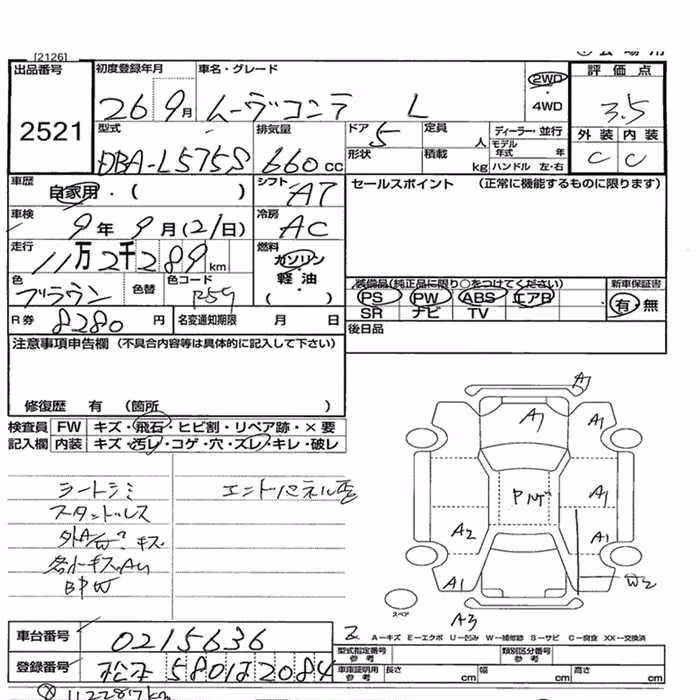 [2126]
出品番号 初度登録年月 車名・グレード 2WD 4WD 評価点
2521 26 9月 ムーヴコンテ L 3.5
外装 内装
C C
型式 排気量 ドア 定員 人 ディーラー・並行
DBA-L575S 660cc 5 形状 積載 kg モデル年式 年 ハンドル 左・右
車歴 自家用・( ) シフト AT セールスポイント (正常に機能するものに限ります)
車検 9年9月(21日) 冷房 AC
走行 11万2千289km 燃料 ガソリン 軽油 ( )
色 ブラウン 色替 色コード R59
装備品(純正品に限り○をつけてください) 新車保証書
PS PW ABS エアB 有・無
SR ナビ TV
R券 8280円 名変通知期限 月 日 後日品
注意事項申告欄 (不具合内容等は具体的に記入して下さい)
修復歴 有 (箇所 )
検査員 FW キズ・飛石・ヒビ割・リペア跡・×要
記入欄 内装 キズ・汚レ・コゲ・穴・スレ・キレ・破レ
シートシミ エンドパネル歪
スタンドレス
外A/W? キズ
各イーキズAu
BPW
A1
A1
A1
Pルゲ
A1
A2
A1
A1
W2
スペア
A3
2 A-キズ E-エクボ U-凹み W-補修跡 S-サビ C-腐食 XX-交換済
車台番号 0215636 型式指定番号 参考 類別区分番号 参考
登録番号 松本 580は2084 車庫証明用 参考 長さ cm 幅 cm 高さ cm
112287km